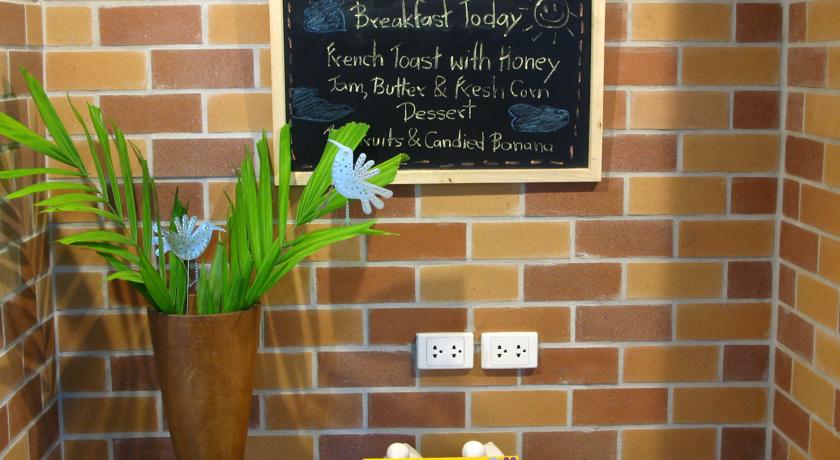 Breakfast Today
French Toast with Honey
Jam, Butter & Fresh Corn
Dessert
& Candied Banana